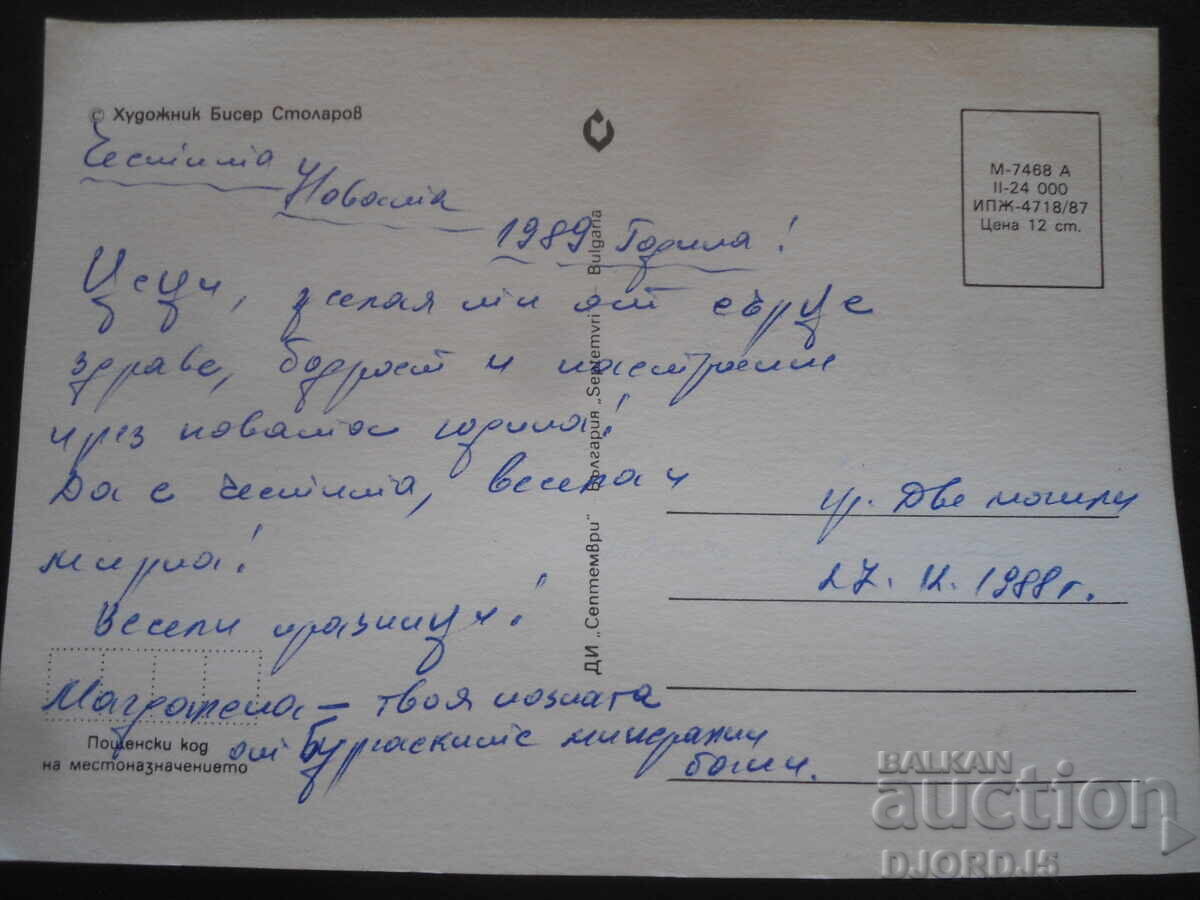 © Художник Бисер Столаров
Честита
Новата
1989 Година!
Цеци, желая ти от сърце
здраве, бодрост и настроение
през новата година!
Да е честита, весела и
мирна!
Весели празници!
Магдалена – твоя позната
от Бургаските минерални
бани.
Пощенски код
на местоназначението
ДИ „Септември" България „Septemvri" Bulgaria
М-7468 А
II-24 000
ИПЖ-4718/87
Цена 12 ст.
гр. Две могили
27. 12. 1988 г.
BALKAN
auction
DJORDJ5